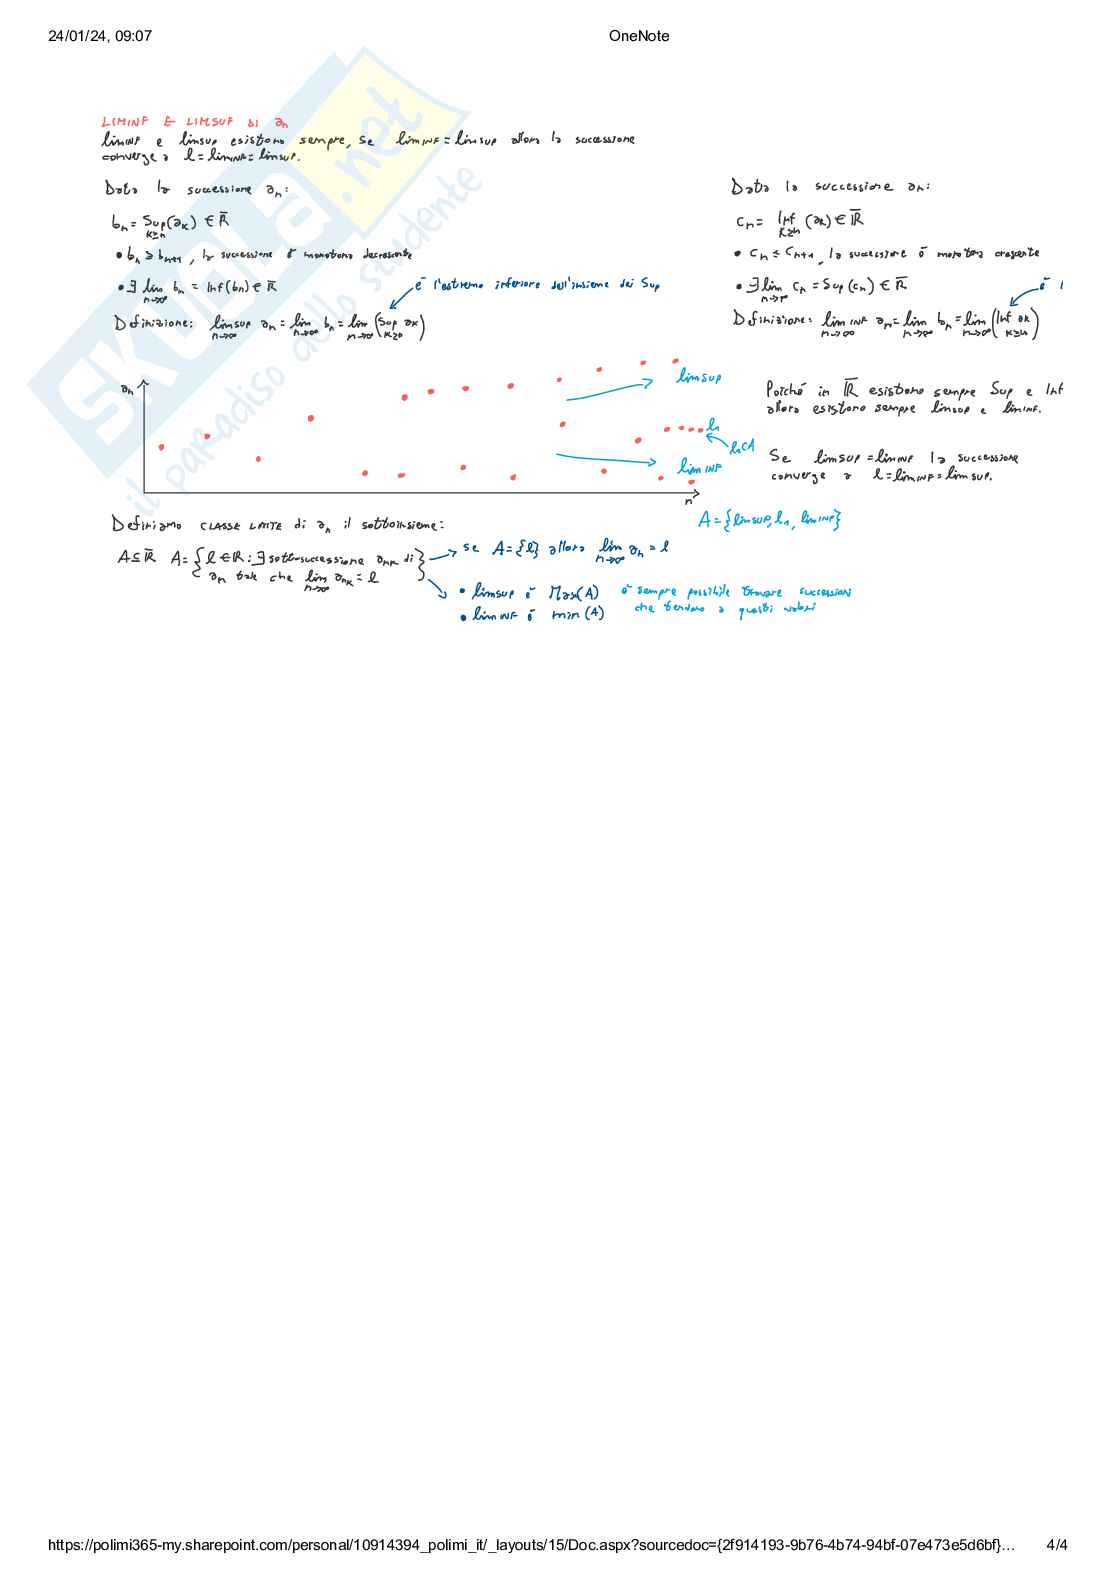 24/01/24, 09:07
OneNote
LIMINF E LIMSUP DI an
limINF e limsup esistono sempre, se limINF = limsup allora la successione
converge a l = limINF = limsup.
Data la successione an:
bn = Sup(ak) ∈ R̅
k≥n
• bn ≥ bn+1, la successione è monotona decrescente
• ∃ lim bn = Inf(bn) ∈ R̅
n→∞
è l'estremo inferiore dell'insieme dei Sup
Definizione: limsup an = lim bn = lim (Sup ak)
n→∞ n→∞ n→∞ k≥n
Data la successione an:
cn = Inf (ak) ∈ R̅
k≥n
• cn ≤ cn+1, la successione è monotona crescente
• ∃ lim cn = Sup(cn) ∈ R̅
n→∞
è l
Definizione: limINF an = lim bn = lim (Inf ak)
n→∞ n→∞ n→∞ k≥n
an
limsup
l1
l1∈A
limINF
n
Poiché in R̅ esistono sempre Sup e Inf
allora esistono sempre limsup e limINF.
Se limsup = limINF la successione
converge a l = limINF = limsup.
A = {limsup, l1, limINF}
Definiamo CLASSE LIMITE di an il sottoinsieme:
A ⊆ R̅ A = {l ∈ R : ∃ sottosuccessione ank di
an tale che lim ank = l}
n→∞
se A = {l} allora lim an = l
n→∞
• limsup è Max(A)
• limINF è min(A)
è sempre possibile trovare successioni
che tendono a questi valori
SKUOLA.net
il paradiso dello studente
https://polimi365-my.sharepoint.com/personal/10914394_polimi_it/_layouts/15/Doc.aspx?sourcedoc={2f914193-9b76-4b74-94bf-07e473e5d6bf}…
4/4